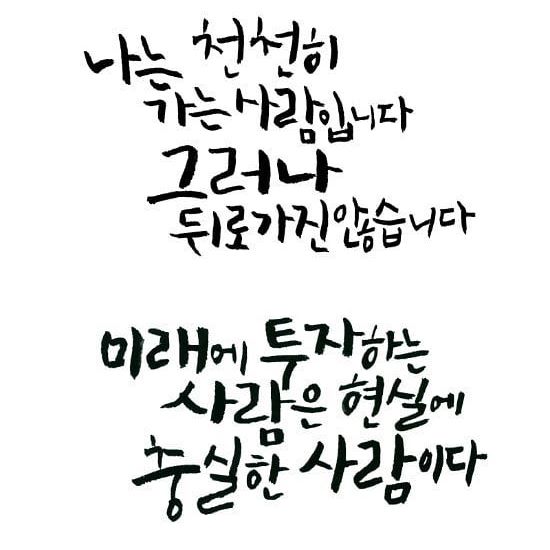 나는 천천히
가는 사람입니다
그러나
뒤로가진 않습니다
미래에 투자하는
사람은 현실에
충실한 사람이다